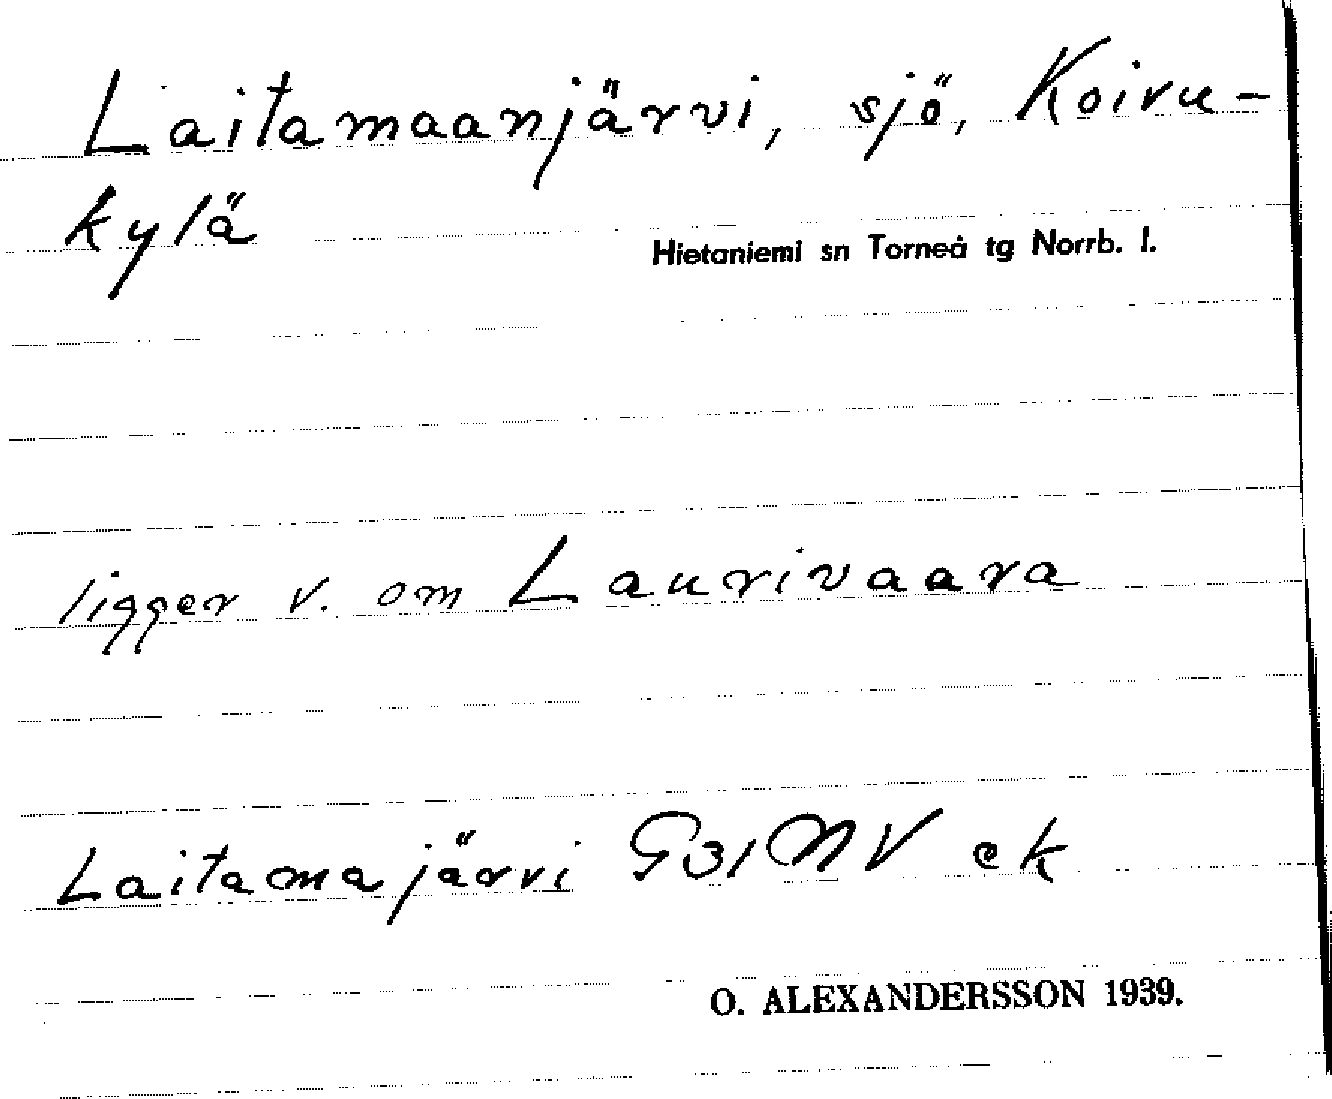 Laitamaanjärvi, sjö, Koivu-
kylä
Hietaniemi sn Torneå tg Norrb. l.
ligger v. om Laurivaara
Laitamajärvi G31NV ek
O. ALEXANDERSSON 1939.